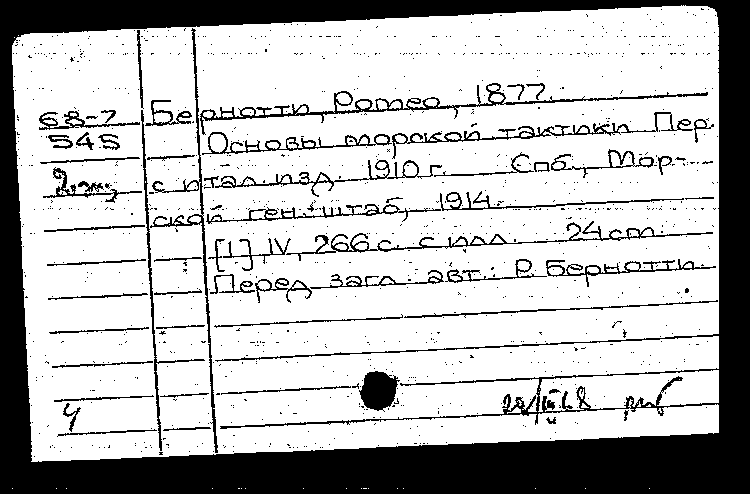 68-7 Бернотти, Ромео, 1877.
545 Основы морской тактики Пер.
2 экз. с итал. изд. 1910 г. Спб., Мор-
ской ген. штаб, 1914.
[1], IV, 266 с. с илл. 24 cm.
Перед загл. авт.: Р. Бернотти.
Ч